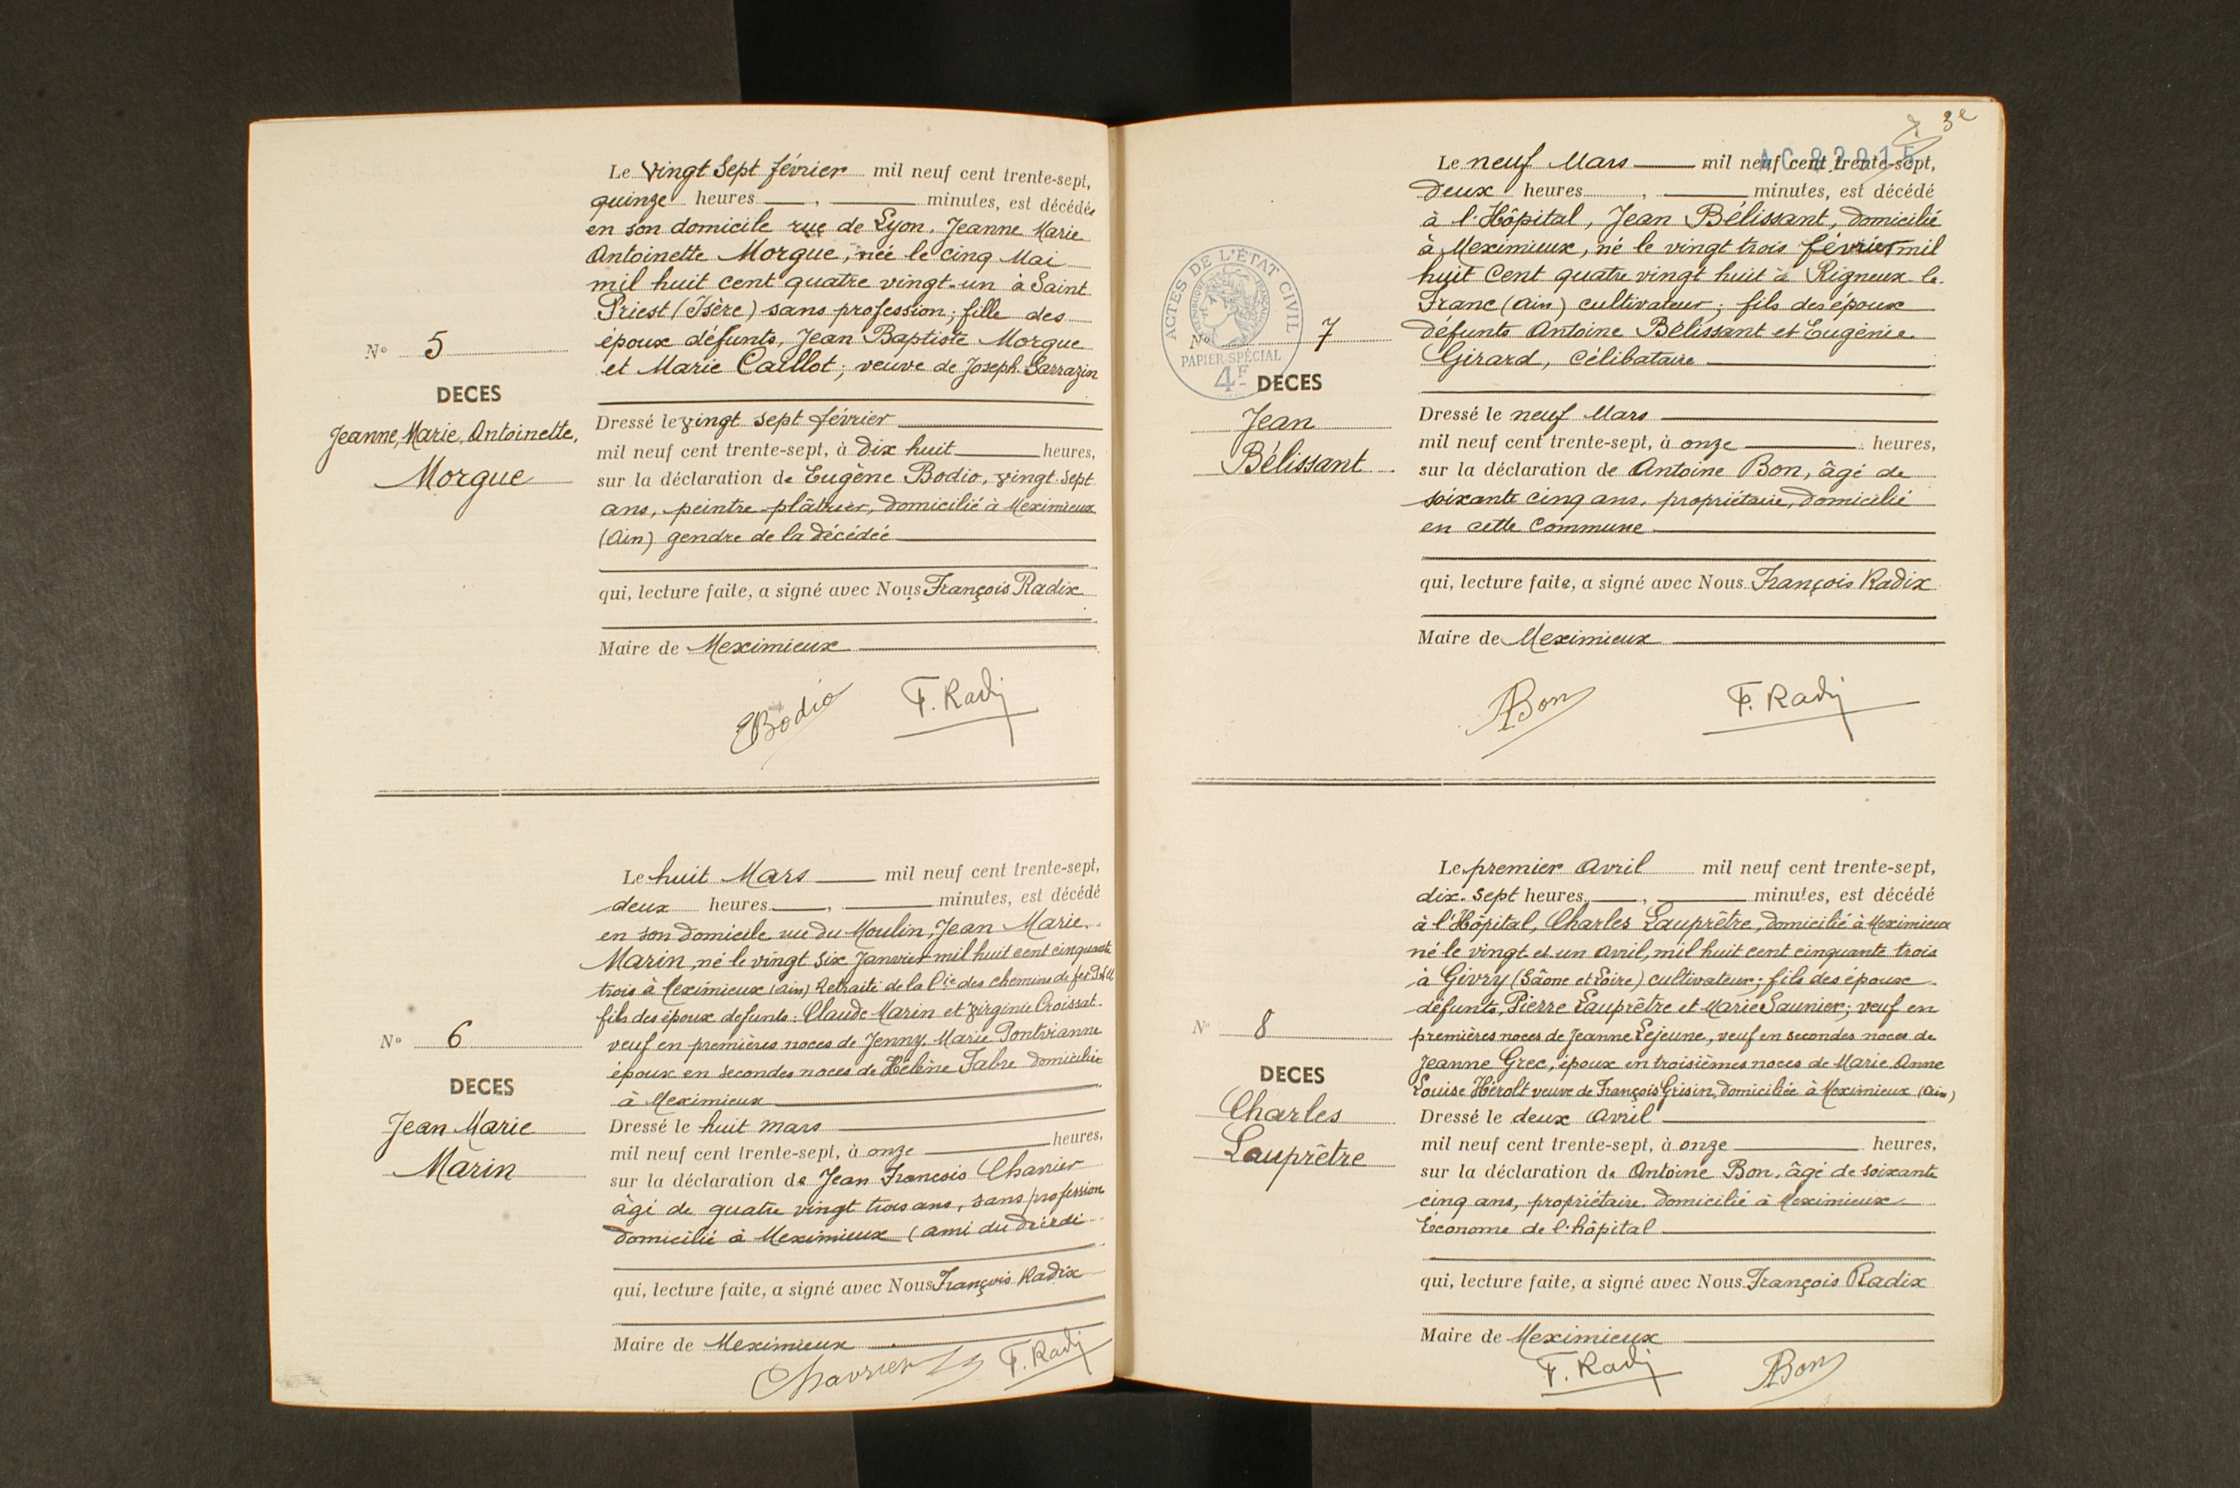 Le vingt sept février mil neuf cent trente-sept,
quinze heures , minutes, est décédée
en son domicile rue de Lyon. Jeanne Marie
Antoinette Morgue, née le cinq Mai
mil huit cent quatre vingt-un à Saint
Priest (Isère) sans profession; fille des
époux défunts, Jean Baptiste Morgue
et Marie Caillot; veuve de Joseph Sarrazin
N° 5
DECES
Jeanne, Marie, Antoinette,
Morgue
Dressé le vingt sept février
mil neuf cent trente-sept, à dix huit heures,
sur la déclaration de Eugène Bodio, vingt sept
ans, peintre plâtrier, domicilié à Meximieux
(Ain) gendre de la décédée
qui, lecture faite, a signé avec Nous François Radix
Maire de Meximieux
EBodio F. Radix
Le huit Mars mil neuf cent trente-sept,
deux heures , minutes, est décédé
en son domicile rue du Moulin, Jean Marie
Marin, né le vingt six Janvier mil huit cent cinquante
trois à Meximieux (Ain) Retraité de la Cie des chemins de fer
fils des époux défunts: Claude Marin et Virginie Croissat
veuf en premières noces de Jenny Marie Pontvianne
époux en secondes noces de Hélène Fabre domiciliée
à Meximieux
N° 6
DECES
Jean Marie
Marin
Dressé le huit mars
mil neuf cent trente-sept, à onze heures,
sur la déclaration de Jean François Chavrier
âgé de quatre vingt trois ans, sans profession
domicilié à Meximieux (ami du
qui, lecture faite, a signé avec Nous François Radix
Maire de Meximieux
Chavrier F. Radix
3e
AC 82915
Le neuf Mars mil neuf cent trente-sept,
deux heures , minutes, est décédé
à l'Hôpital, Jean Bélissant, domicilié
à Meximieux, né le vingt trois février mil
huit cent quatre vingt huit à Rigneux-le-
Franc (Ain) cultivateur; fils des époux
défunts Antoine Bélissant et Eugénie
Girard, célibataire
ACTES DE L'ÉTAT CIVIL
PAPIER SPÉCIAL
4F
N° 7
DECES
Jean
Bélissant
Dressé le neuf Mars
mil neuf cent trente-sept, à onze heures,
sur la déclaration de Antoine Bon, âgé de
soixante cinq ans, propriétaire, domicilié
en cette Commune
qui, lecture faite, a signé avec Nous François Radix
Maire de Meximieux
ABon F. Radix
Le premier Avril mil neuf cent trente-sept,
dix-sept heures , minutes, est décédé
à l'Hôpital, Charles Lauprêtre, domicilié à Meximieux
né le vingt et un Avril, mil huit cent cinquante trois
à Givry (Saône et Loire) cultivateur; fils des époux
défunts, Pierre Lauprêtre et Marie Saunier; veuf en
premières noces de Jeanne Lejeune, veuf en secondes noces de
Jeanne Grec, époux en troisièmes noces de Marie Anne
Louise Hérolt veuve de François Grisin, domiciliée à Meximieux (Ain)
N° 8
DECES
Charles
Lauprêtre
Dressé le deux Avril
mil neuf cent trente-sept, à onze heures,
sur la déclaration de Antoine Bon, âgé de soixante
cinq ans, propriétaire domicilié à Meximieux
Économe de l'hôpital
qui, lecture faite, a signé avec Nous François Radix
Maire de Meximieux
F. Radix ABon